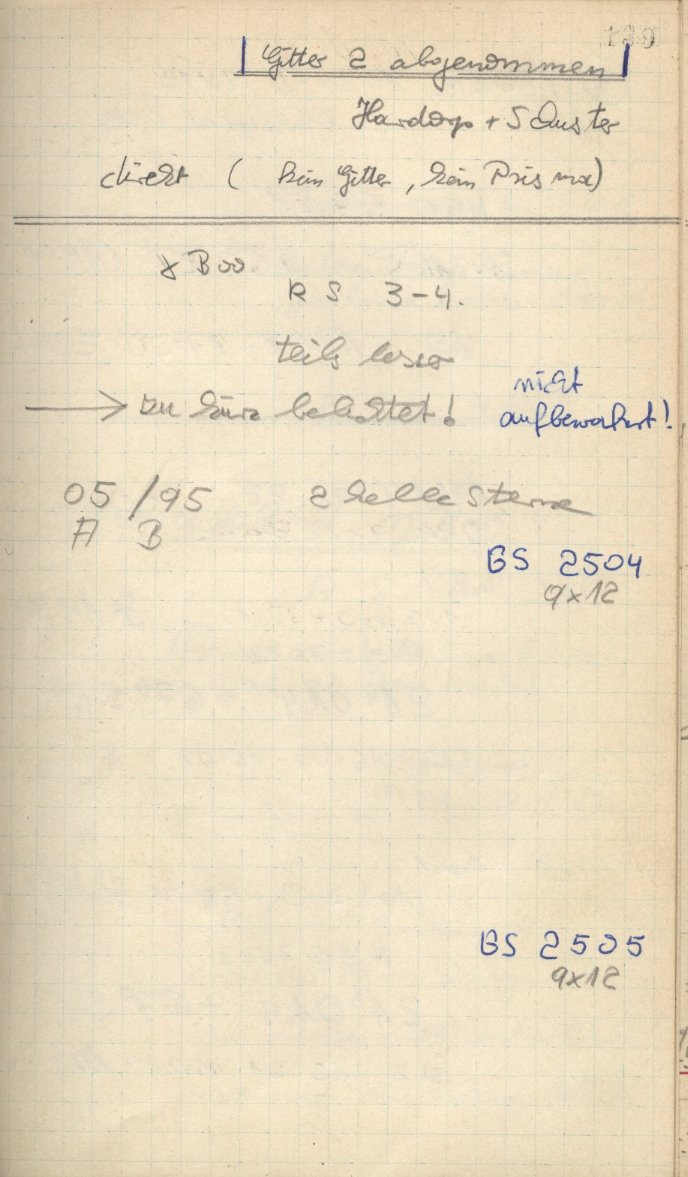 139
Gitter 2 abgenommen
Hardorp + Schuster
direkt ( kein Gitter, kein Prisma)
γ Boo
R S 3-4.
teils
→ zu kurz belichtet!
nicht
aufbewahrt!
05 / 95 2 helle Sterne
A B
GS 2504
9x12
GS 2505
9x12